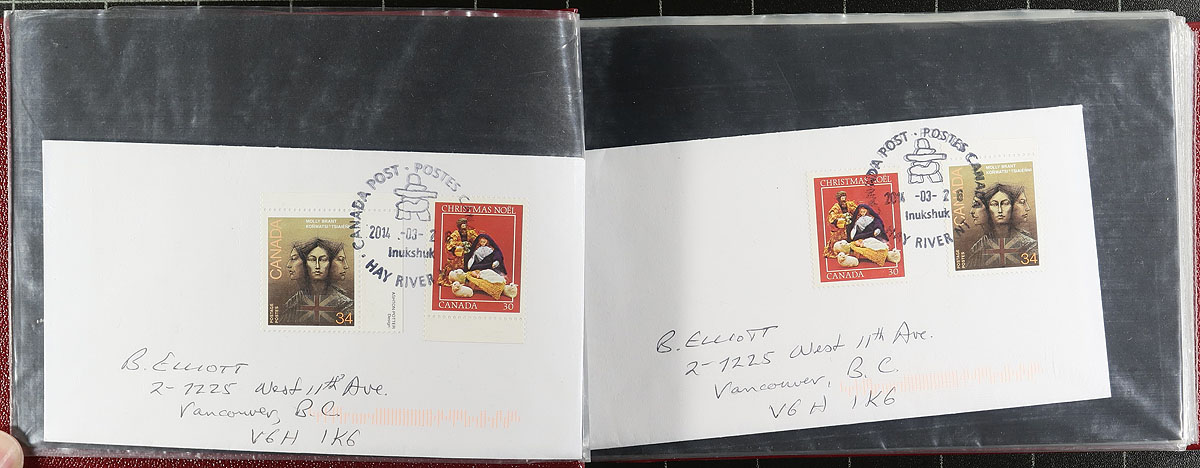 CANADA POST · POSTES C
2014 -03- 2
Inukshuk
HAY RIVER
CANADA
MOLLY BRANT
KOÑWATSI'TSIAIÉÑNI
POSTAGE
POSTES
34
ASHTON-POTTER
Design
CHRISTMAS NOËL
CANADA 30
B. ELLIOTT
2-1225 West 11th Ave.
Vancouver, B.C.
V6H 1K6
DA POST · POSTES CANADA
2014 -03- 2
Inukshuk
HAY RIVER
CHRISTMAS NOËL
CANADA 30
CANADA
MOLLY BRANT
KOÑWATSI'TSIAIÉÑNI
POSTAGE
POSTES
34
B. ELLIOTT
2-1225 West 11th Ave.
Vancouver, B.C.
V6H 1K6